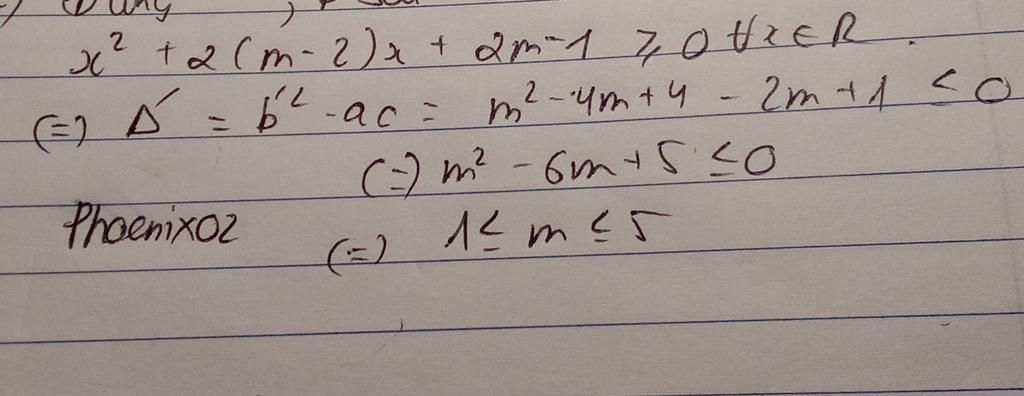 x² + 2(m-2)x + 2m-1 ≥ 0 ∀x∈R.
(=) Δ' = b'² - ac = m² - 4m + 4 - 2m + 1 ≤ 0
(=) m² - 6m + 5 ≤ 0
Phoenix02 (=) 1 ≤ m ≤ 5